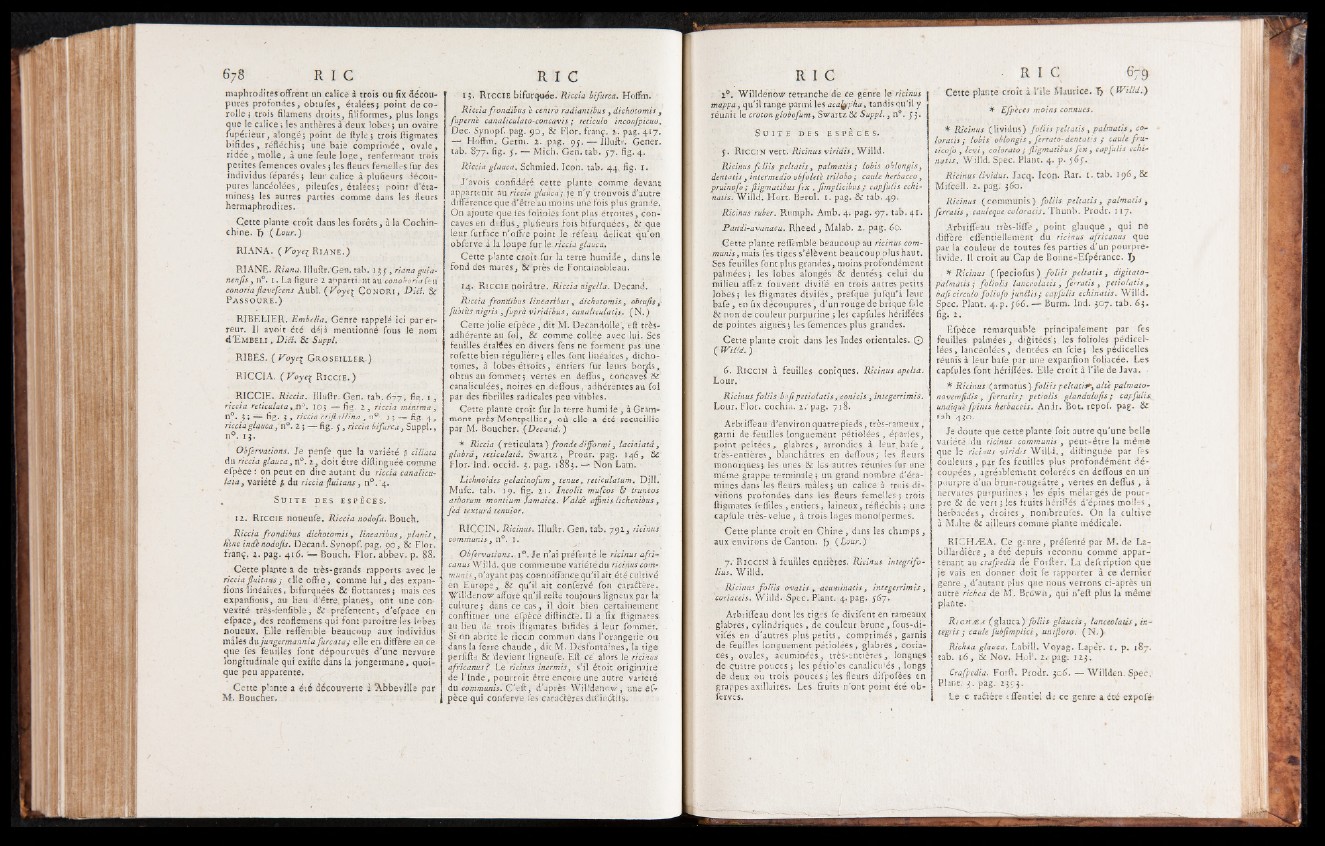 678 R I C R I C
maphrodites offrent un calice à trois ou ſix décou-
pures profondes, obtuſes, étalées; point de co-
rolle; trois filamens droits, filiformes, plus longs
que le calice; les anthères à deux lobes; un ovaire
ſupérieur, alongé; point de ſtyle; trois ſtigmates
bifides, réfléchis; une baie comprimée, ovale,
ridée, molle, à une ſeule loge, renfermant trois
petites ſemences ovales; les fleurs femelles ſur des
individus ſéparés; leur calice à pluſieurs décou-
pures lancéolées, pileuſes, étalées; point d'éta-
mines; les autres parties comme dans les fleurs
hermaphrodites.
Cette plante croît dans les forêts, à la Cochin-
chine. ♄ (Lour.)
RIANA. (Voyez RIANE.)
RIANE. Riana. Illuſtr. Gen. tab. 135, riana guia-
nenſis, n°. 1. La figure 2 appartient au conohoria ſeu
conoria flaveſcens Aubl. (Voyez CONORI, Dict. &
PASSOURE.)
RIBELIER. Embelia. Genre rappelé ici par er-
reur. Il avoit été déjà mentionné ſous le nom
d'EMBELI, Dict. & Suppl.
RIBES. (Voyez GROSEILLER.)
RICCIA. (Voyez RICCIE.)
RICCIE. Riccia. Illuſtr. Gen. tab. 677, fig. 1,
riccia reticulata, n°. 103 — fig. 2, riccia minima,
n°. 3; — fig. 3, riccia criſtallina, n°. 11 — fig. 4,
riccia glauca, n°. 23 — fig. 5, riccia bifurca, Suppl.,
n°. 13.
Obſervations. Je penſe que la variété β ciliata
du riccia glauca, n°. 2, doit être diſtinguée comme
eſpèce: on peut en dire autant du riccia canalicu-
lata, variété β du riccia fluitans, n°. 4.
SUITE DES ESPÈCES.
12. RICCIE noueuſe. Riccia nodoſa. Bouch.
Riccia frondibus dichotomis, linearibus, planis,
hinc indè nodoſis. Decand. Synopſ. pag. 90, & Flor.
franç. 2. pag. 416. — Bouch. Flor. abbev. p. 88.
Cette plante a de très-grands rapports avec le
riccia fluitans; elle offre, comme lui, des expan-
ſions linéaires, bifurquées & flottantes; mais ces
expanſions, au lieu d'être planes, ont une con-
vexité très-ſenſible, & préſentent, d'eſpace en
eſpace, des renflemens qui font paroître les lobes
noueux. Elle reſſemble beaucoup aux individus
mâles du jungermannia furcata; elle en diffère en ce
que ſes feuilles ſont dépourvues d'une nervure
longitudinale qui exiſte dans la jongermane, quoi-
que peu apparente.
Cette plante a été découverte à Abbeville par
M. Boucher.
13. RICCIE bifurquée. Riccia bifurca. Hoffm.
Riccia frondibus è centro radiantibus, dichotomis,
ſupernè canaliculato-concavis; reticulo inconſpicuo.
Dec. Synopſ. pag. 90, & Flor. franç. 2. pag. 417.
— Hoffm. Germ. 2. pag. 95. — Illuſtr. Gener.
tab. 877. fig. 5. — Mich. Gen. tab. 57. fig. 4.
Riccia glauca. Schmied. Icon. tab. 44. fig. 1.
J'avois conſidéré cette plante comme devant
appartenir au riccia glauca; je n'y trouvois d'autre
différence que d'être au moins une fois plus grande.
On ajoute que ſes folioles ſont plus étroites, con-
caves en deſſus, pluſieurs fois bifurquées, & que
leur ſurface n'offre point le réſeau délicat qu'on
obſerve à la loupe ſur le riccia glauca.
Cette plante croît ſur la terre humide, dans le
fond des mares, & près de Fontainebleau.
14. RICCIE noirâtre. Riccia nigella. Decand.
Riccia frondibus linearibus, dichotomis, obtuſis,
ſubtùs nigris, ſuprà viridibus, canaliculatis. (N.)
Cette jolie eſpèce, dit M. Decandolle, eſt très-
adhérente au ſol, & comme collée avec lui. Ses
feuilles étalées en divers ſens ne forment pas une
roſette bien régulière; elles ſont linéaires, dicho-
tomes, à lobes étroits, entiers ſur leurs bords,
obtus au ſommet; vertes en deſſus, concaves &
canaliculées, noires en deſſous, adhérentes au ſol
par des fibrilles radicales peu viſibles.
Cette plante croît ſur la terre humide, à Gram-
mont près Montpellier, où elle a été recueillie
par M. Boucher. (Decand.)
* Riccia (reticulata) fronde difformi, laciniatâ,
glabrâ, reticulatâ. Swartz, Prodr. pag. 146, &
Flor. Ind. occid. 3. pag. 1883. — Non Lam.
Lichnoides gelatinoſum, tenue, reticulatum. Dill.
Muſc. tab. 19. fig. 21. Incolit muſcos & truncos
arborum montium Jamaicæ. Valdè affinis lichenibus,
ſed texturâ tenuior.
RICCIN. Ricinus. Illuſtr. Gen. tab. 792, ricinus
communis, n°. 1.
Obſervations. 1°. Je n'ai préſenté le ricinus afri-
canus Willd. que comme une variété du ricinus com-
munis, n'ayant pas connoiſſance qu'il ait été cultivé
en Europe, & qu'il ait conſervé ſon caractère.
Willdenow aſſure qu'il reſte toujours ligneux par la
culture; dans ce cas, il doit bien certainement
conſtituer une eſpèce diſtincte. Il a ſix ſtigmates
au lieu de trois ſtigmates bifides à leur ſommet.
Si on abrite le riccin commun dans l'orangerie ou
dans la ſerre chaude, dit M. Desfontaines, la tige
perſiſte & devient ligneuſe. Eſt-ce alors le ricinus
africanus? Le ricinus inermis, s'il étoit originaire
de l'Inde, pourroit être encore une autre variété
du communis. C'eſt, d'après Willdenow, une eſ-
pèce qui conſerve ſes caractères diſtinctifs.
R I C R I C 679
2°. Willdenow retranche de ce genre le ricinus
mappa, qu'il range parmi les acalypha, tandis qu'il y
réunit le croton globoſum, Swartz & Suppl., n°. 53.
SUITE DES ESPÈCES.
5. RICCIN vert. Ricinus viridis. Willd.
Ricinus foliis peltatis, palmatis; lobis oblongis,
dentatis, intermedio obſoletè trilobo; caule herbaceo,
pruinoſo; ſtigmatibus ſix, ſimplicibus; capſulis echi-
natis. Willd. Hort. Berol. 1. pag. & tab. 49.
Ricinus ruber. Rumph. Amb. 4. pag. 97. tab. 41.
Pandi-avanacu. Rheed, Malab. 2. pag. 60.
Cette plante reſſemble beaucoup au ricinus com-
munis, mais ſes tiges s'élèvent beaucoup plus haut.
Ses feuilles ſont plus grandes, moins profondément
palmées; les lobes alongés & dentés; celui du
milieu aſſez ſouvent diviſé en trois autres petits
lobes; les ſtigmates diviſés, preſque juſqu'à leur
baſe, en ſix découpures, d'un rouge de brique ſale
& non de couleur purpurine; les capſules hériſſées
de pointes aiguës; les ſemences plus grandes.
Cette plante croît dans les Indes orientales. ☉
(Willd.)
6. RICCIN à feuilles coniques. Ricinus apelta.
Lour.
Ricinus foliis baſi petiolatis, conicis, integerrimis.
Lour. Flor. cochin. 2. pag. 718.
Arbriſſeau d'environ quatre pieds, très-rameux,
garni de feuilles longuement pétiolées, éparſes,
point peltées, glabres, arrondies à leur baſe,
très-entières, blanchâtres en deſſous; les fleurs
monoïques; les unes & les autres réunies ſur une
même grappe terminale; un grand nombre d'éta-
mines dans les fleurs mâles; un calice à trois di-
viſions profondes dans les fleurs femelles; trois
ſtigmates ſeſſiles, entiers, laineux, réfléchis; une
capſule très-velue, à trois loges monoſpermes.
Cette plante croît en Chine, dans les champs,
aux environs de Canton. ♄ (Lour.)
7. RICCIN à feuilles entières. Ricinus integrifo-
lius. Willd.
Ricinus foliis ovatis, acuminatis, integerrimis,
coriaceis. Willd. Spec. Plant. 4. pag. 567.
Arbriſſeau dont les tiges ſe diviſent en rameaux
glabres, cylindriques, de couleur brune, ſous-di-
viſés en d'autres plus petits, comprimés, garnis
de feuilles longuement pétiolées, glabres, coria-
ces, ovales, acuminées, très-entières, longues
de quatre pouces; les pétioles canaliculés, longs
de deux ou trois pouces; les fleurs diſpoſées en
grappes axillaires. Les fruits n'ont point été ob-
ſervés.
Cette plante croît à l'île Maurice. ♄ (Willd.)
* Eſpèces moins connues.
* Ricinus (lividus) foliis peltatis, palmatis, co-
loratis; lobis oblongis, ſerrato-dentatis; caule fru-
ticoſo, levi, colorato; ſtigmatibus ſex, capſulis echi-
natis. Willd. Spec. Plant. 4. p. 565.
Ricinus lividus. Jacq. Icon. Rar. 1. tab. 196, &
Miſcell. 2. pag. 360.
Ricinus (communis) foliis peltatis, palmatis,
ſerratis, cauleque coloratis. Thunb. Prodr. 117.
Arbriſſeau très-liſſe, point glauque, qui ne
diffère eſſentiellement du ricinus africanus que
par la couleur de toutes ſes parties d'un pourpre-
livide. Il croît au Cap de Bonne-Eſpérance. ♄
* Ricinus (ſpecioſus) foliis peltatis, digitato-
palmatis; foliolis lanceolatis, ſerratis, petiolatis,
baſi circulo folioſo junctis; capſulis echinatis. Willd.
Spec. Plant. 4. p. 566. — Burm. Ind. 307. tab. 63.
fig. 2.
Eſpèce remarquable principalement par ſes
feuilles palmées, digitées; les folioles pédicel-
lées, lancéolées, dentées en ſcie; les pédicelles
réunis à leur baſe par une expanſion foliacée. Les
capſules ſont hériſſées. Elle croît à l'île de Java.
* Ricinus (armatus) foliis peltatis, altè palmato-
novemfidis, ſerratis; petiolis glanduloſis; capſulis
undique ſpinis herbaceis. Andr. Bot. repoſ. pag. &
tab. 430.
Je doute que cette plante ſoit autre qu'une belle
variété du ricinus communis, peut-être la même
que le ricinus viridis Willd., diſtinguée par ſes
couleurs, par ſes feuilles plus profondément dé-
coupées, agréablement colorées en deſſous en un
pourpre d'un brun-rougeâtre, vertes en deſſus, à
nervures purpurines; les épis mélangés de pour-
pre & de vert; les fruits hériſſés d'épines molles,
herbacées, droites, nombreuſes. On la cultive
à Malte & ailleurs comme plante médicale.
RICHÆA. Ce genre, préſenté par M. de La-
billardière, a été depuis reconnu comme appar-
tenant au craſpedia de Forſter. La deſcription que
je vais en donner doit ſe rapporter à ce dernier
genre, d'autant plus que nous verrons ci-après un
autre richea de M. Brown, qui n'eſt plus la même
plante.
RICHÆA (glauca) foliis glaucis, lanceolatis, in-
tegris; caule ſubſimplici, unifloro. (N.)
Richea glauca. Labill. Voyag. Lapér. 1. p. 187.
tab. 16, & Nov. Holl. 2. pag. 123.
Craſpedia. Forſt. Prodr. 306. — Willden. Spec.
Plant. 3. pag. 2393.
Le caractère eſſentiel de ce genre a été expoſé